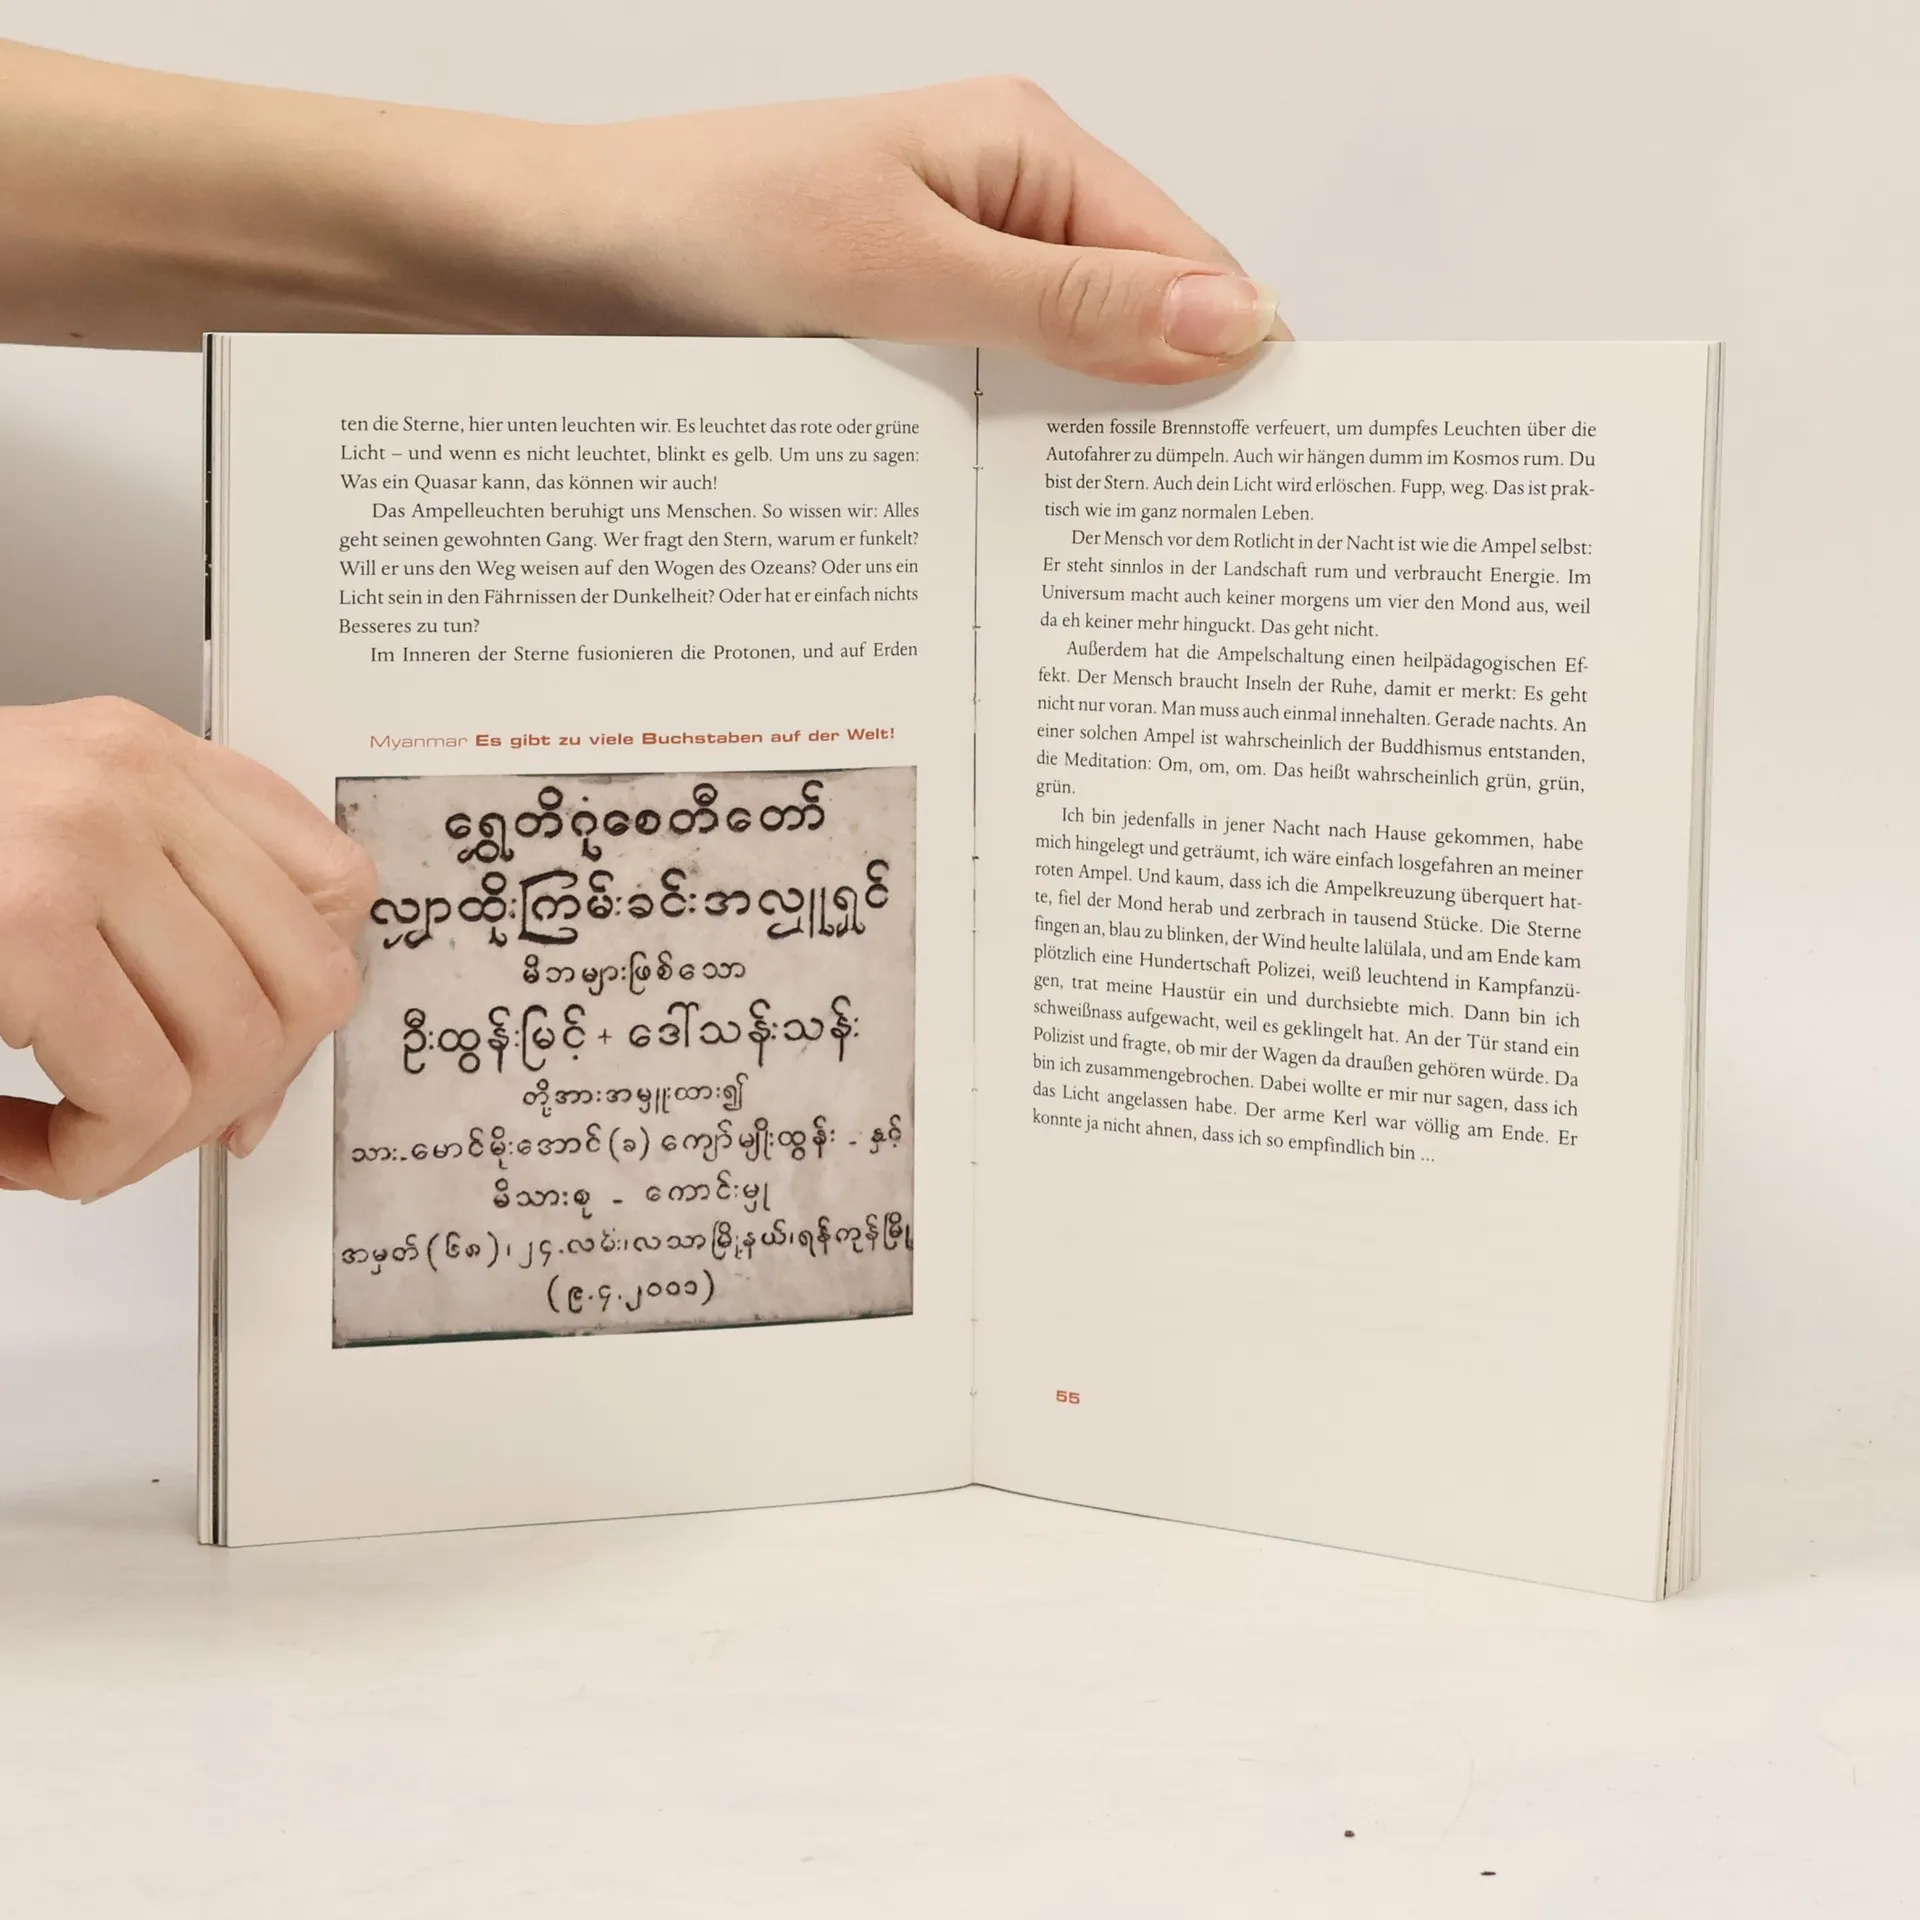 ten die Sterne, hier unten leuchten wir. Es leuchtet das rote oder grüne
Licht – und wenn es nicht leuchtet, blinkt es gelb. Um uns zu sagen:
Was ein Quasar kann, das können wir auch!
Das Ampelleuchten beruhigt uns Menschen. So wissen wir: Alles
geht seinen gewohnten Gang. Wer fragt den Stern, warum er funkelt?
Will er uns den Weg weisen auf den Wogen des Ozeans? Oder uns ein
Licht sein in den Fährnissen der Dunkelheit? Oder hat er einfach nichts
Besseres zu tun?
Im Inneren der Sterne fusionieren die Protonen, und auf Erden
Myanmar Es gibt zu viele Buchstaben auf der Welt!
ရွှေတိဂုံစေတီတော်
လျှာထိုးကြမ်းခင်းအလှူရှင်
မိဘများဖြစ်သော
ဦးထွန်းမြင့် + ဒေါ်သန်းသန်း
တို့အားအမှူးထား၍
သား-မောင်မိုးအောင်(ခ) ကျော်မျိုးထွန်း - နှင့်
မိသားစု - ကောင်းမှု
အမှတ်(၆၈)၊ ၂၄.လမ်း၊လသာမြို့နယ်၊ရန်ကုန်မြို့
(၉.၄.၂၀၀၁)
werden fossile Brennstoffe verfeuert, um dumpfes Leuchten über die
Autofahrer zu dümpeln. Auch wir hängen dumm im Kosmos rum. Du
bist der Stern. Auch dein Licht wird erlöschen. Fupp, weg. Das ist prak-
tisch wie im ganz normalen Leben.
Der Mensch vor dem Rotlicht in der Nacht ist wie die Ampel selbst:
Er steht sinnlos in der Landschaft rum und verbraucht Energie. Im
Universum macht auch keiner morgens um vier den Mond aus, weil
da eh keiner mehr hinguckt. Das geht nicht.
Außerdem hat die Ampelschaltung einen heilpädagogischen Ef-
fekt. Der Mensch braucht Inseln der Ruhe, damit er merkt: Es geht
nicht nur voran. Man muss auch einmal innehalten. Gerade nachts. An
einer solchen Ampel ist wahrscheinlich der Buddhismus entstanden,
die Meditation: Om, om, om. Das heißt wahrscheinlich grün, grün,
grün.
Ich bin jedenfalls in jener Nacht nach Hause gekommen, habe
mich hingelegt und geträumt, ich wäre einfach losgefahren an meiner
roten Ampel. Und kaum, dass ich die Ampelkreuzung überquert hat-
te, fiel der Mond herab und zerbrach in tausend Stücke. Die Sterne
fingen an, blau zu blinken, der Wind heulte lalülala, und am Ende kam
plötzlich eine Hundertschaft Polizei, weiß leuchtend in Kampfanzü-
gen, trat meine Haustür ein und durchsiebte mich. Dann bin ich
schweißnass aufgewacht, weil es geklingelt hat. An der Tür stand ein
Polizist und fragte, ob mir der Wagen da draußen gehören würde. Da
bin ich zusammengebrochen. Dabei wollte er mir nur sagen, dass ich
das Licht angelassen habe. Der arme Kerl war völlig am Ende. Er
konnte ja nicht ahnen, dass ich so empfindlich bin ...
55